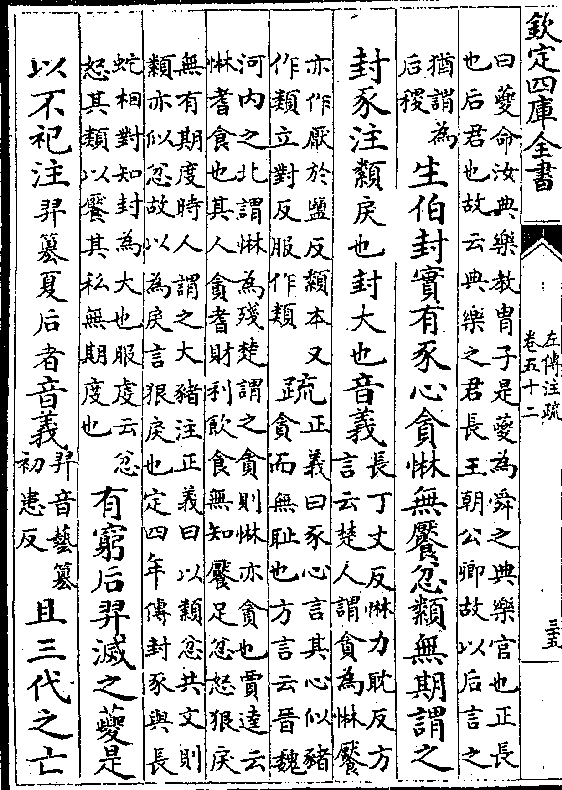 欽定四庫全書
左傳注疏
卷五十二
三五
曰夔命汝典樂教胄子是夔為舜之典樂官也正長
也后君也故云典樂之君長王朝公卿故以后言之
猶謂為
后稷
生伯封實有豕心貪惏無饜忿纇無期謂之
封豕注纇戾也封大也音義
長丁丈反惏力耽反方
言云楚人謂貪為惏饜
亦作厭於鹽反纇本又
作類立對反服作類
疏
正義曰豕心言其心似豬
貪而無耻也方言云晉魏
河内之北謂惏為殘楚謂之貪則惏亦貪也賈逵云
惏耆食也其人貪耆財利飲食無知饜足忿怒狠戾
無有期度時人謂之大豬注正義曰以纇忿共文則
纇亦似忿故以為戾言狠戾也定四年傳封豕與長
蛇相對知封為大也服虔云忿
怒其類以饜其私無期度也
有窮后羿滅之夔是
以不祀注羿簒夏后者音義
羿音藝簒
初患反
且三代之亡